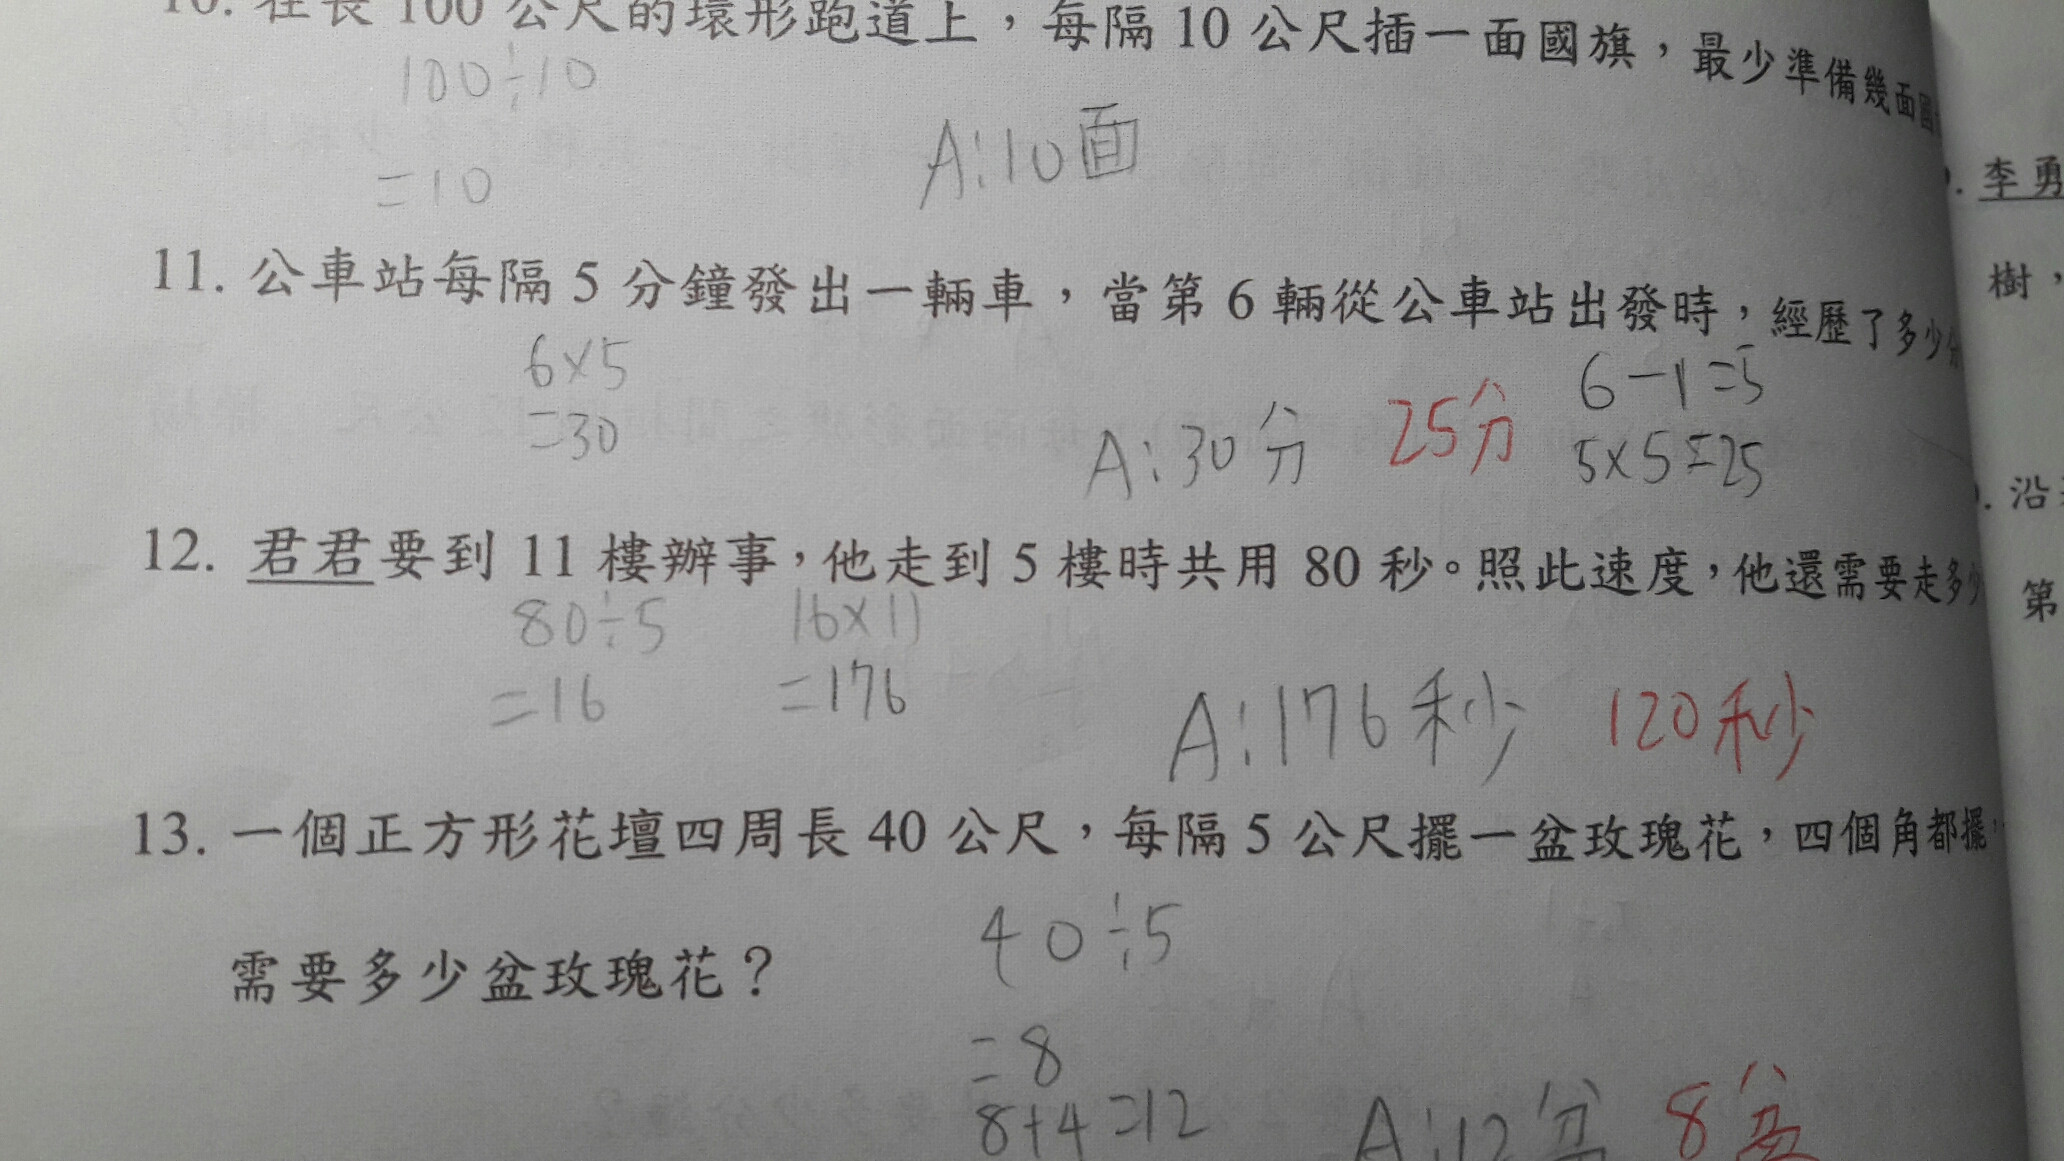 10. 在長 100 公尺的環形跑道上，每隔 10 公尺插一面國旗，最少準備幾面國
100÷10
=10
A:10面
11. 公車站每隔 5 分鐘發出一輛車，當第 6 輛從公車站出發時，經歷了多少分
6×5
=30
A:30分
25分
6-1=5
5×5=25
12. 君君要到 11 樓辦事，他走到 5 樓時共用 80 秒。照此速度，他還需要走多少
80÷5
=16
16×11
=176
A:176秒
120秒
13. 一個正方形花壇四周長 40 公尺，每隔 5 公尺擺一盆玫瑰花，四個角都擺，
需要多少盆玫瑰花？
40÷5
=8
8+4=12
A:12盆
8盆
李勇
樹，
沿
第